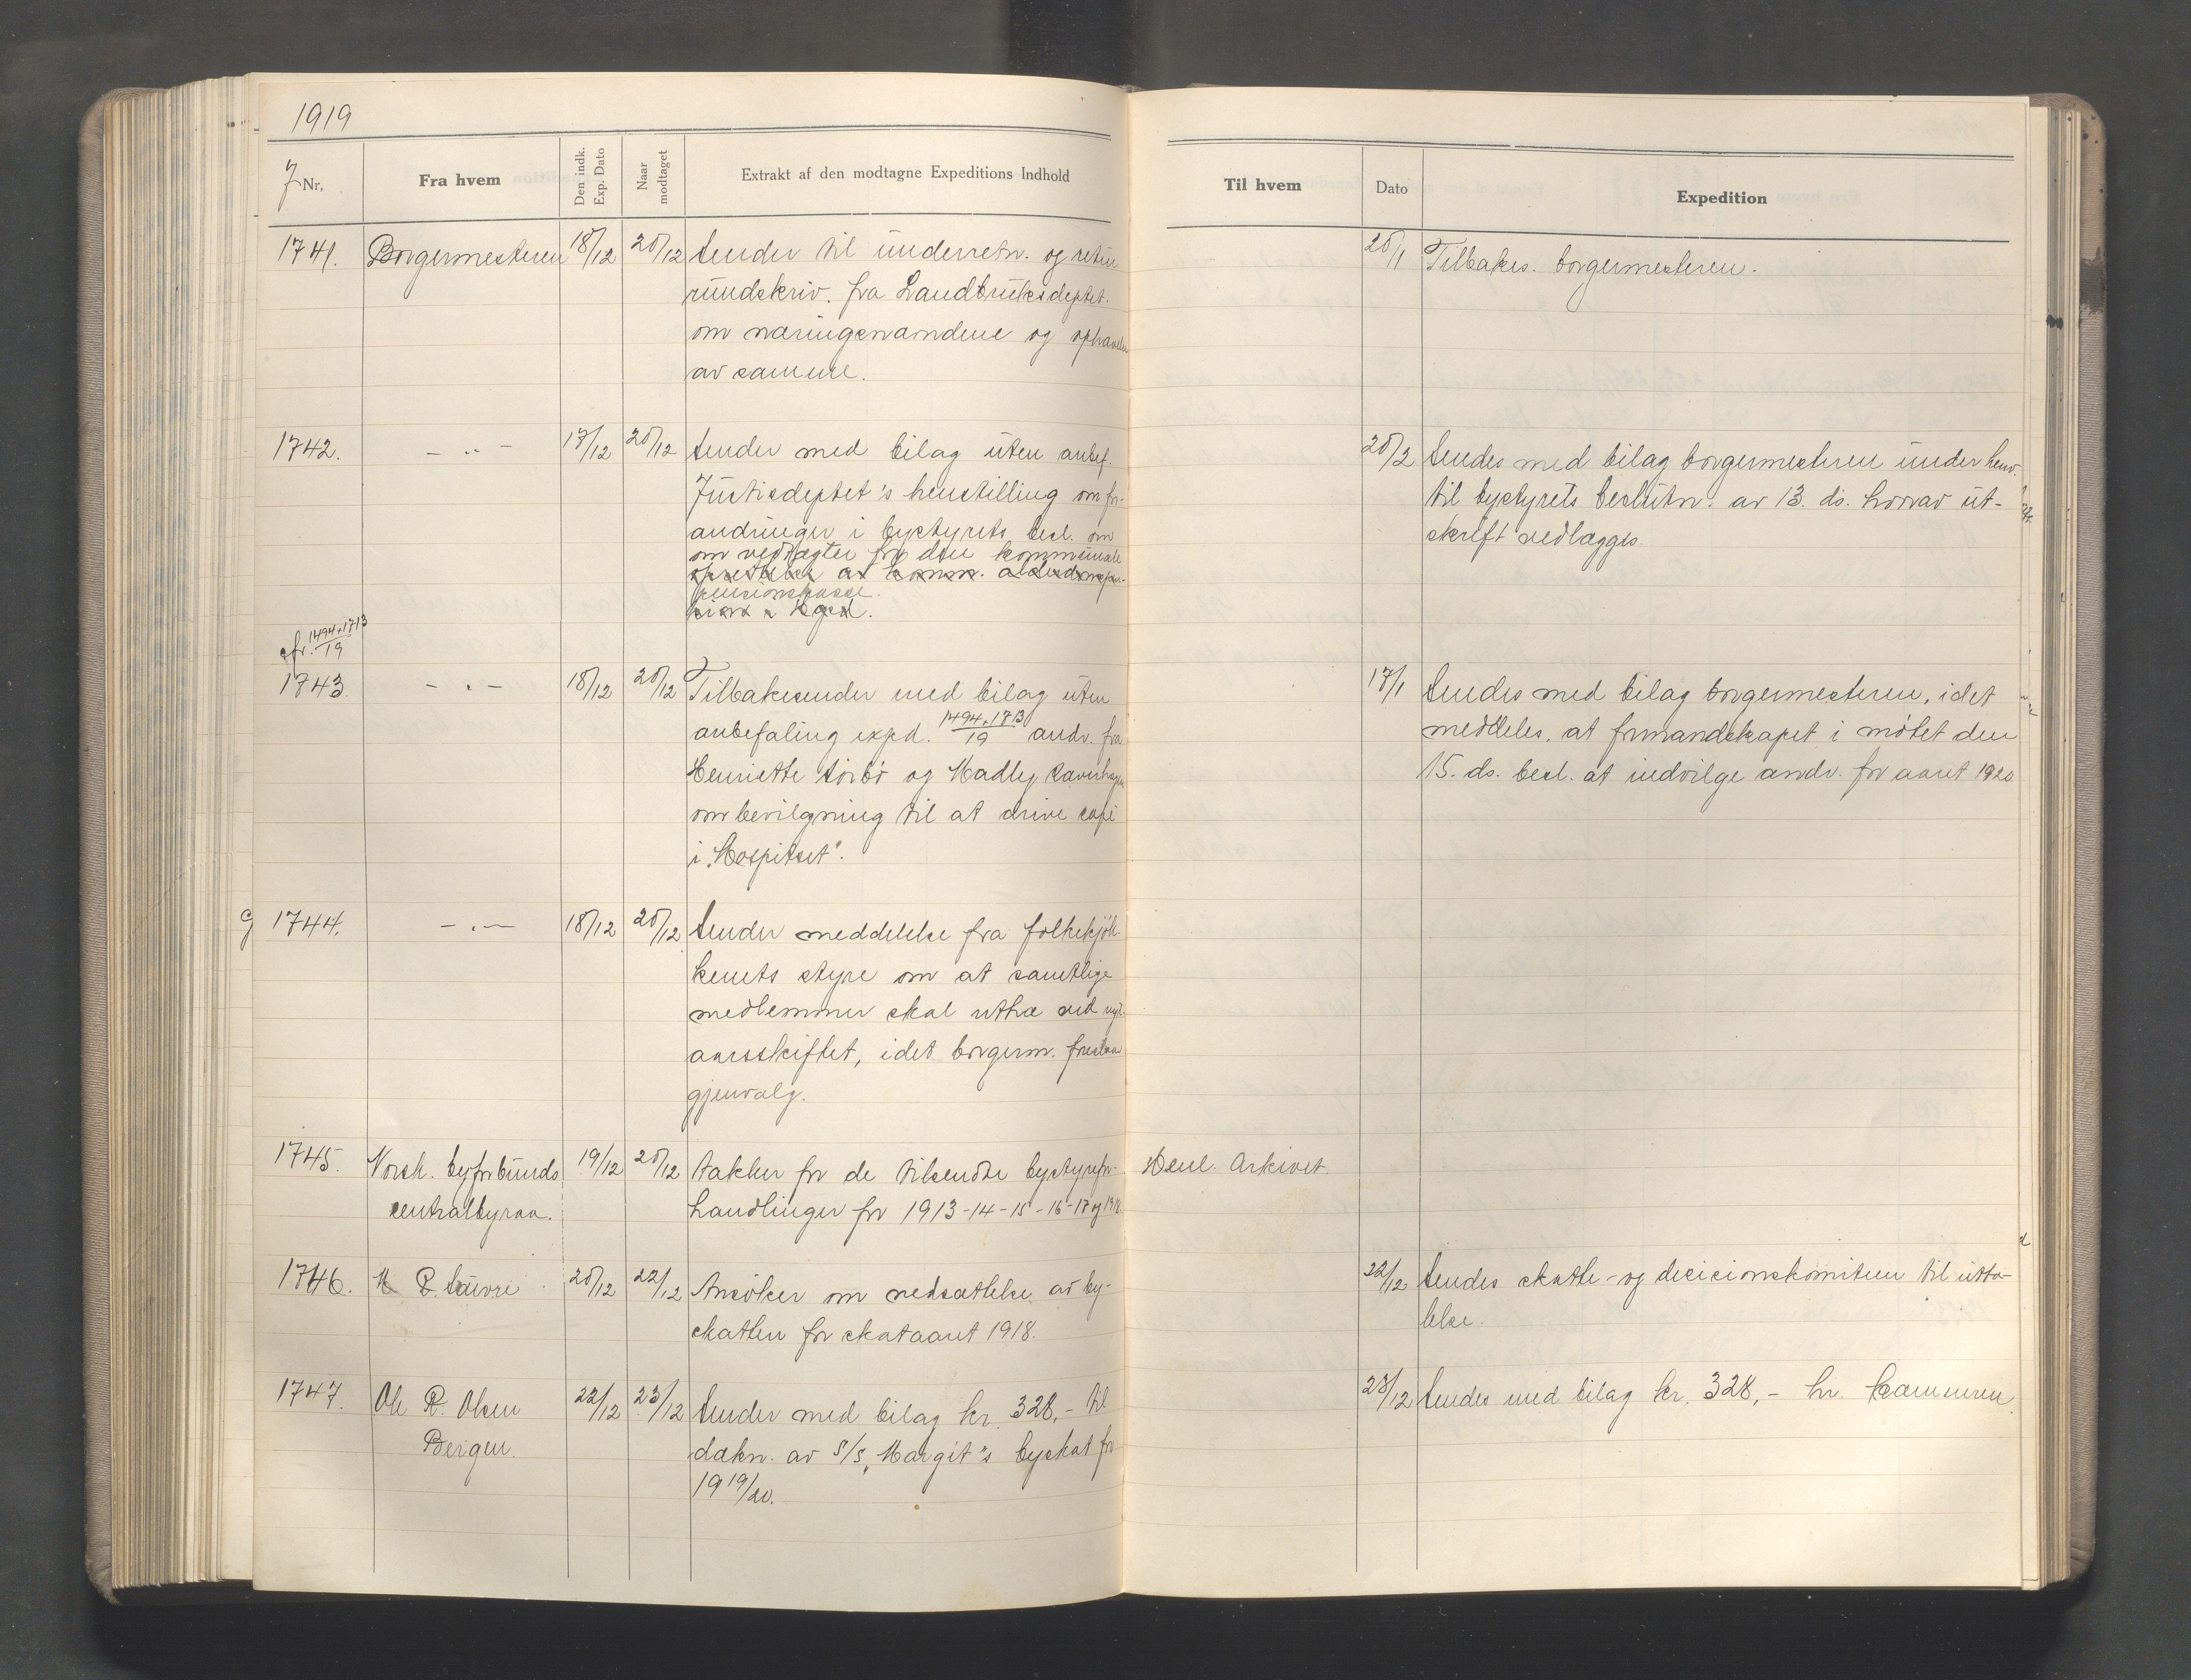 1919
J Nr.
Fra hvem
Den indk. Exp. Dato
Naar modtaget
Extrakt af den modtagne Expeditions Indhold
Til hvem
Dato
Expedition
1741. Borgermesteren 18/12 20/12 Sender til underretn. og retur
rundskriv. fra Landbruksdeptet.
om næringsnævndene og ophævelse
av samme.
20/1 Tilbakes. borgermesteren.
1742. - " - 17/12 20/12 Sender med bilag uten anbef.
Justisdeptet's henstilling om for-
andringer i bystyrets besl. om
om vedtægter for den kommunale
oprettelse av komm. alderdomspen-
pensionskasse.
20/2 Sendes med bilag borgermesteren under henv.
til bystyrets beslutn. av 13. ds. hvorav ut-
skrift vedlægges.
cfr. 1494+1713/19
1743. - " - 18/12 20/12 Tilbakesender med bilag uten
anbefaling exped. 1494+1713/19 andr. fra
Henriette Sørbø og Madley Ravnhagen
om bevilgning til at drive café
i "Hospitset".
17/1 Sendes med bilag borgermesteren, idet
meddeles, at formandskapet i møtet den
15. ds. besl. at indvilge andr. for aaret 1920.
g 1744. - " - 18/12 20/12 Sender meddelelse fra folkekjøk-
kenets styre om at samtlige
medlemmer skal uttræ ved nyt-
aarsskiftet, idet borgerm. foreslaar
gjenvalg.
1745. Norsk. byforbunds 19/12 20/12 Takker for de tilsendte bystyrefor-
centralbyraa. handlinger for 1913-14-15-16-17 og 1918.
Henl. Arkivet.
1746. M P. Sævre 20/12 22/12 Ansøker om nedsættelse av by-
skatten for skataaret 1918.
22/12 Sendes skatte- og decisionskomiteen til utta-
lelse.
1747. Ole R. Olsen 22/12 23/12 Sender med bilag kr. 328,- til
Bergen. dækn. av S/S "Margit"s byskat for
1919/20.
23/12 Sendes med bilag kr. 328,- hr. kæmneren.